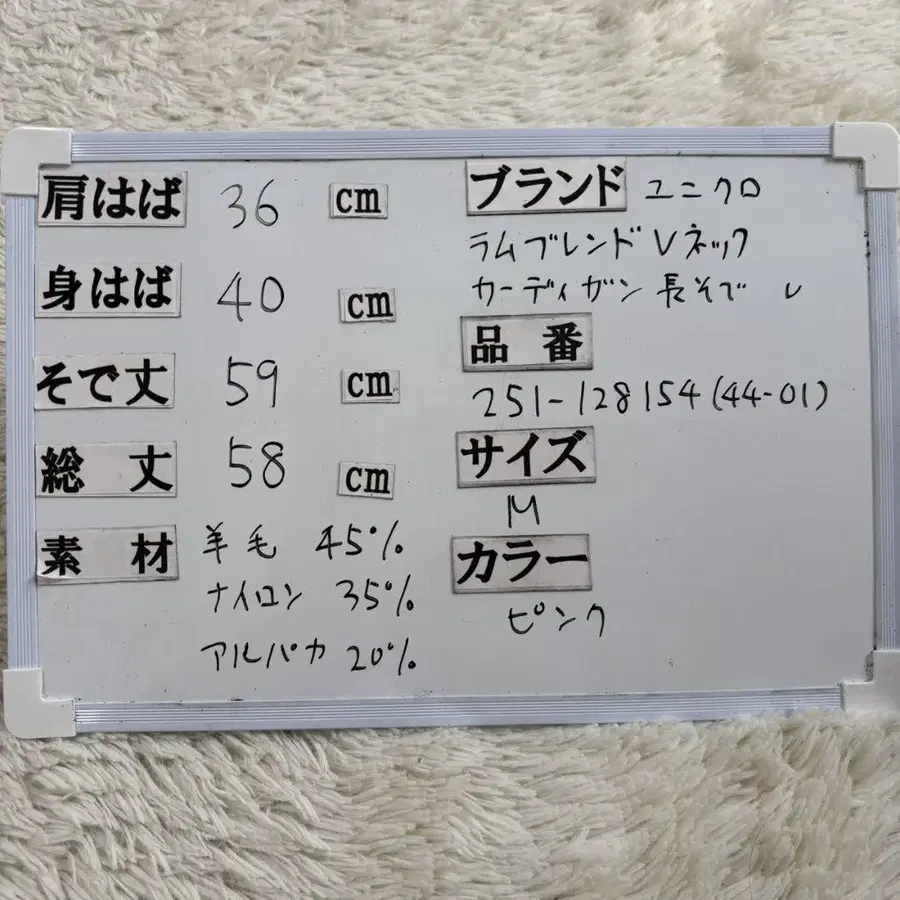 肩はば 36 cm
身はば 40 cm
そで丈 59 cm
総丈 58 cm
素材 羊毛 45%
ナイロン 35%
アルパカ 20%
ブランド ユニクロ
ラムブレンドVネック
カーディガン 長そで
品番
251-128154(44-01)
サイズ
M
カラー
ピンク